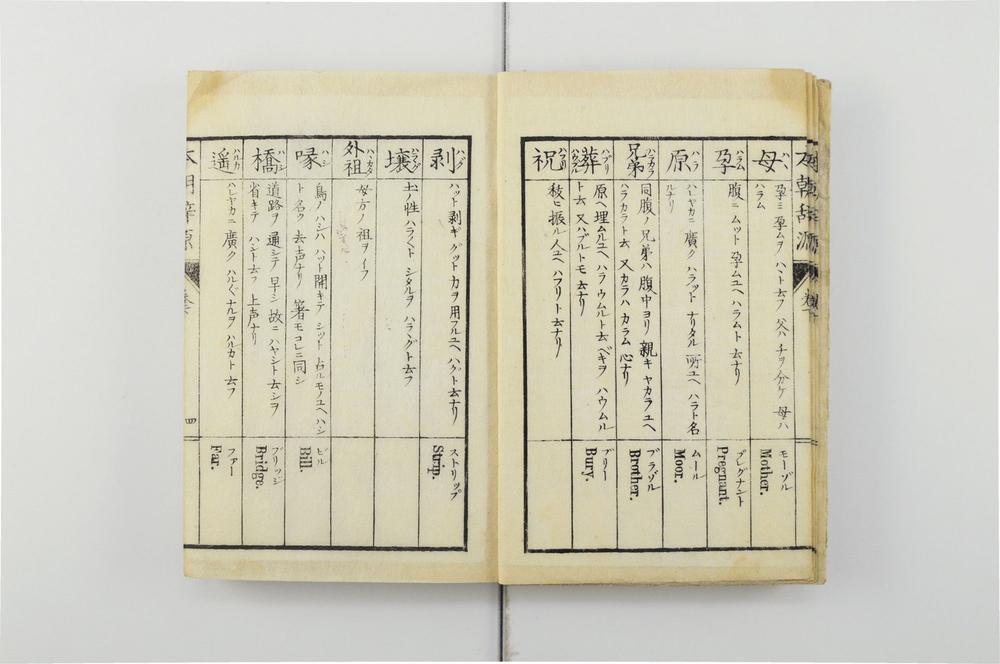 母 ハヽ
孕ミ 孕ムヲ ハヽト云フ 父ハ チヲ分ケ 母ハ
ハラム
モーゾル
Mother.
孕 ハラム
腹ニ ムット 孕ムユヘ ハラムト 云ナリ
プレグナント
Pregnant.
原 ハラ
ハレヤカニ 廣ク ハラット ナリタル 所ユヘ ハラト名
ルナリ
ムール
Moor.
兄弟 ハラカラ
同腹ノ 兄弟ハ 腹中ヨリ 親キ ヤカラユヘ
ハラカラト云 又カラハ カラム 心ナリ
ブラゾル
Brother.
葬 ハブリ ハウムル
原ヘ埋ムルユヘ ハラウムルト云ベキヲ ハウムル
ト云 又ハブルトモ 云ナリ
ブリー
Bury.
祝 ハフリ
秡ヒ 振ル 人ユヘ ハフリト 云ナリ
剥 ハグ
ハット 剥ギ グット カヲ用フルユヘ ハグット云ナリ
ストリップ
Strip.
壌
土ノ性 ハラヽクト シタルヲ
外祖
母方ノ 祖ヲイフ
喙 ハシ
鳥ノ ハシハ ハット開キテ シット 占ルモノユヘ ハシ
ト名ク 去声ナリ 箸モコレニ同シ
ビル
Bill.
橋 ハシ
道路ヲ 通シテ 早シ 故ニ ハヤシト 云シヲ
省キテ ハシト云フ 上声ナリ
ブリッジ
Bridge.
遥 ハルカ
ハレヤカニ 廣ク ナルヲ ハルカト 云フ
ファー
Far.
四